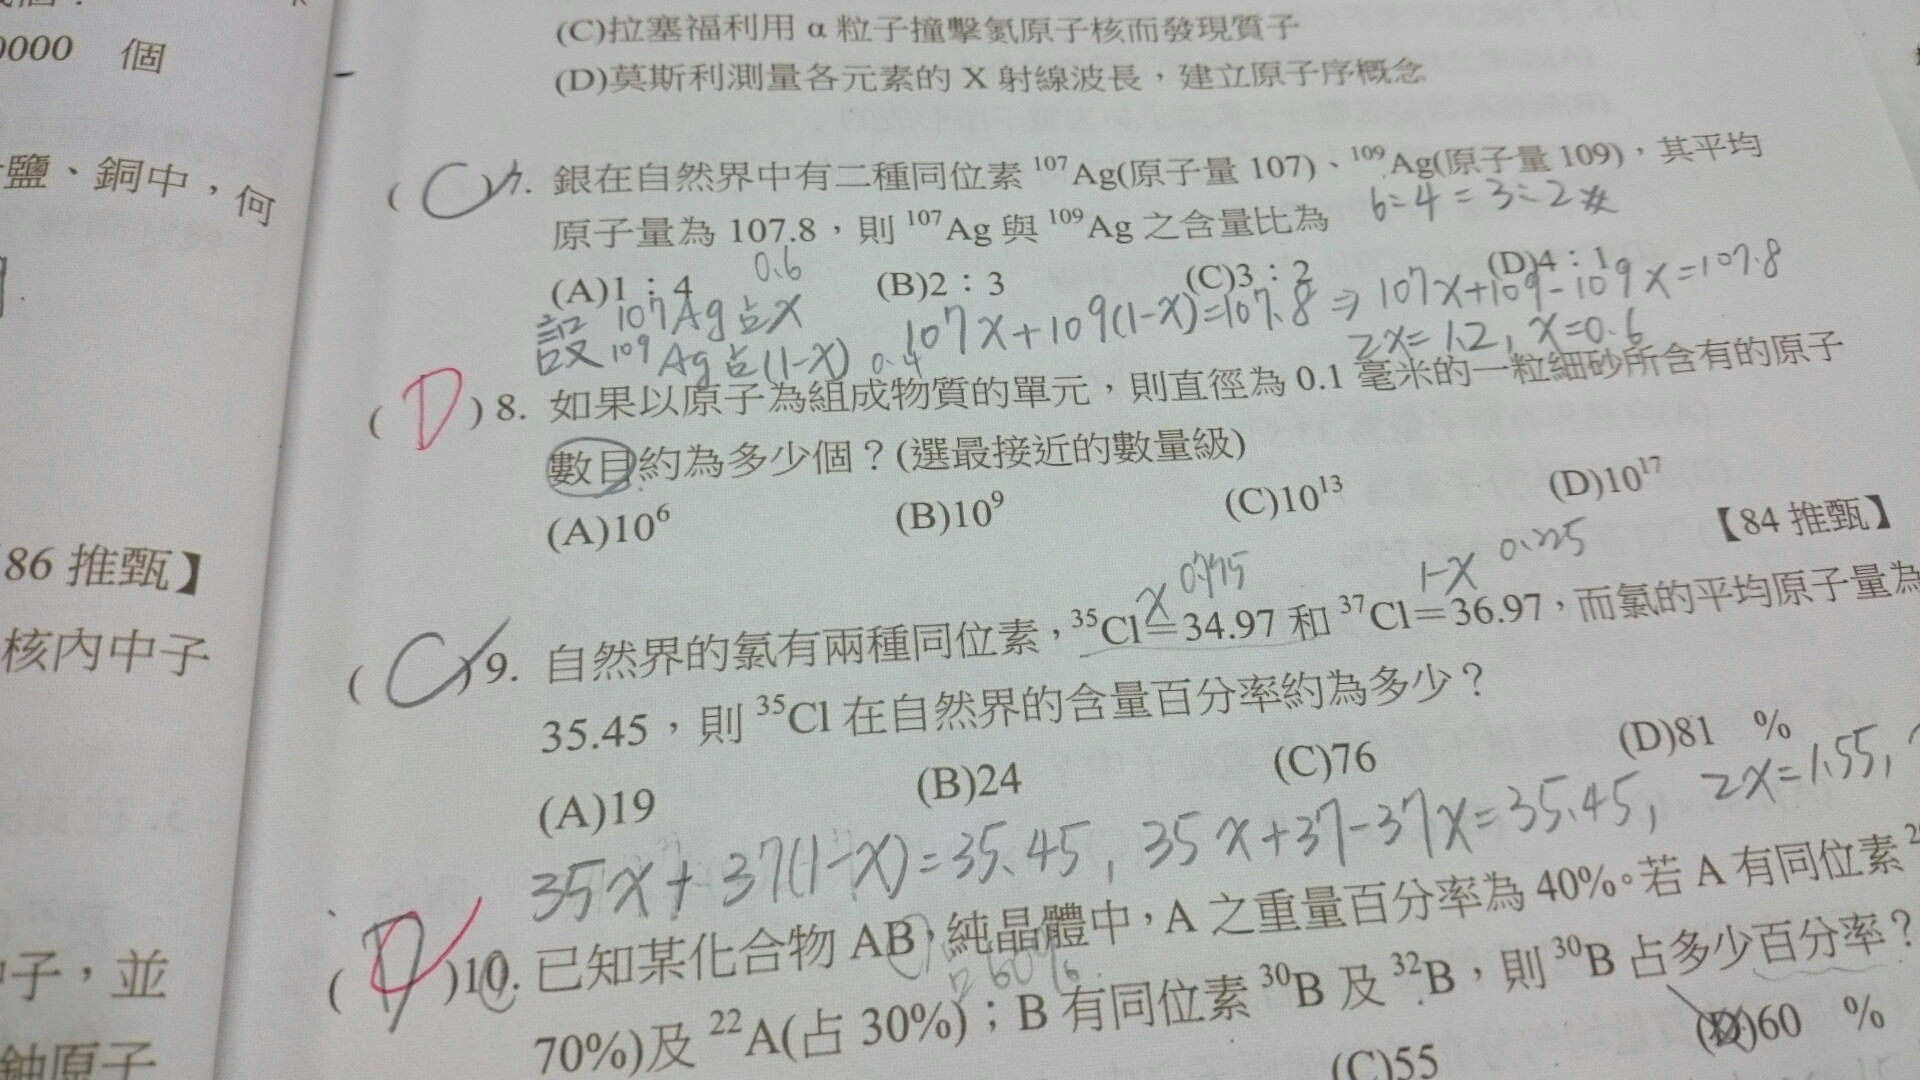 0000 個
鹽、銅中，何
86 推甄】
核內中子
子，並
鈾原子
(C)拉塞福利用 α 粒子撞擊氮原子核而發現質子
(D)莫斯利測量各元素的 X 射線波長，建立原子序概念
( C )7. 銀在自然界中有二種同位素 ¹⁰⁷Ag(原子量 107)、¹⁰⁹Ag(原子量 109)，其平均
原子量為 107.8，則 ¹⁰⁷Ag 與 ¹⁰⁹Ag 之含量比為
6:4=3:2
(A)1：4 (B)2：3 (C)3：2 (D)4：1
0.6
設 ¹⁰⁷Ag 占 x
¹⁰⁹Ag 占(1-x) 0.4
107x+109(1-x)=107.8 ⇒ 107x+109-109x=107.8
2x=1.2, x=0.6
( D )8. 如果以原子為組成物質的單元，則直徑為 0.1 毫米的一粒細砂所含有的原子
數目約為多少個？(選最接近的數量級)
(A)10⁶ (B)10⁹ (C)10¹³ (D)10¹⁷
【84 推甄】
x 0.775 1-x 0.225
( C )9. 自然界的氯有兩種同位素，³⁵Cl＝34.97 和 ³⁷Cl＝36.97，而氯的平均原子量為
35.45，則 ³⁵Cl 在自然界的含量百分率約為多少？
(A)19 (B)24 (C)76 (D)81 %
35x+37(1-x)=35.45, 35x+37-37x=35.45, 2x=1.55,
( D )10. 已知某化合物 AB，純晶體中，A 之重量百分率為 40%。若 A 有同位素
60%
70%)及 ²²A(占 30%)；B 有同位素 ³⁰B 及 ³²B，則 ³⁰B 占多少百分率？
(C)55 (D)60 %